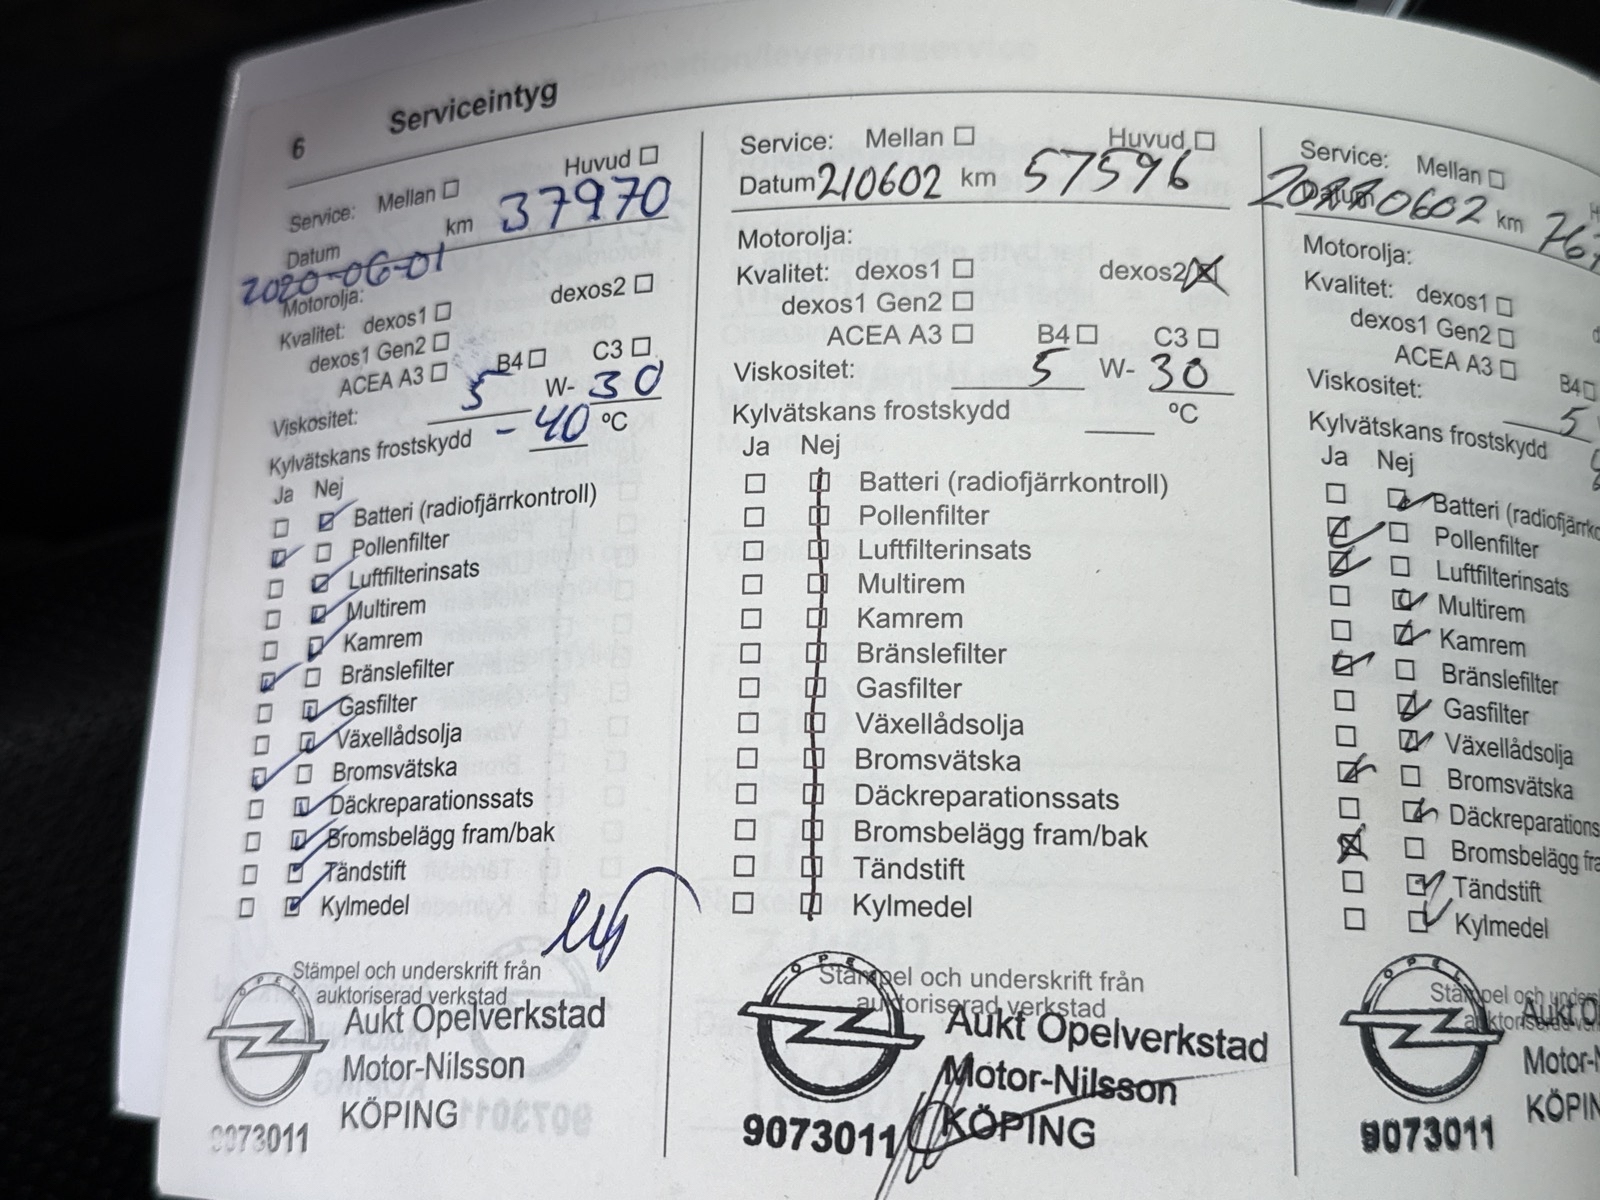 6 Serviceintyg
Service: Mellan Huvud
Datum km 37970
2020-06-01
Motorolja:
Kvalitet: dexos1 dexos2
dexos1 Gen2
ACEA A3 B4 C3
Viskositet: 5 W- 30
Kylvätskans frostskydd -40 °C
Ja Nej
Batteri (radiofjärrkontroll)
Pollenfilter
Luftfilterinsats
Multirem
Kamrem
Bränslefilter
Gasfilter
Växellådsolja
Bromsvätska
Däckreparationssats
Bromsbelägg fram/bak
Tändstift
Kylmedel
Stämpel och underskrift från
auktoriserad verkstad
OPEL
Aukt Opelverkstad
Motor-Nilsson
KÖPING
9073011
Service: Mellan Huvud
Datum 210602 km 57596
Motorolja:
Kvalitet: dexos1 dexos2
dexos1 Gen2
ACEA A3 B4 C3
Viskositet: 5 W- 30
Kylvätskans frostskydd °C
Ja Nej
Batteri (radiofjärrkontroll)
Pollenfilter
Luftfilterinsats
Multirem
Kamrem
Bränslefilter
Gasfilter
Växellådsolja
Bromsvätska
Däckreparationssats
Bromsbelägg fram/bak
Tändstift
Kylmedel
Stämpel och underskrift från
auktoriserad verkstad
OPEL
Aukt Opelverkstad
Motor-Nilsson
KÖPING
9073011
Service: Mellan
Datum km
Motorolja:
Kvalitet: dexos1
dexos1 Gen2
ACEA A3 B4
Viskositet: 5
Kylvätskans frostskydd
Ja Nej
Batteri (radiofjärrko
Pollenfilter
Luftfilterinsats
Multirem
Kamrem
Bränslefilter
Gasfilter
Växellådsolja
Bromsvätska
Däckreparations
Bromsbelägg fra
Tändstift
Kylmedel
Stämpel och unders
OPEL
Aukt O
Motor-N
KÖPIN
9073011